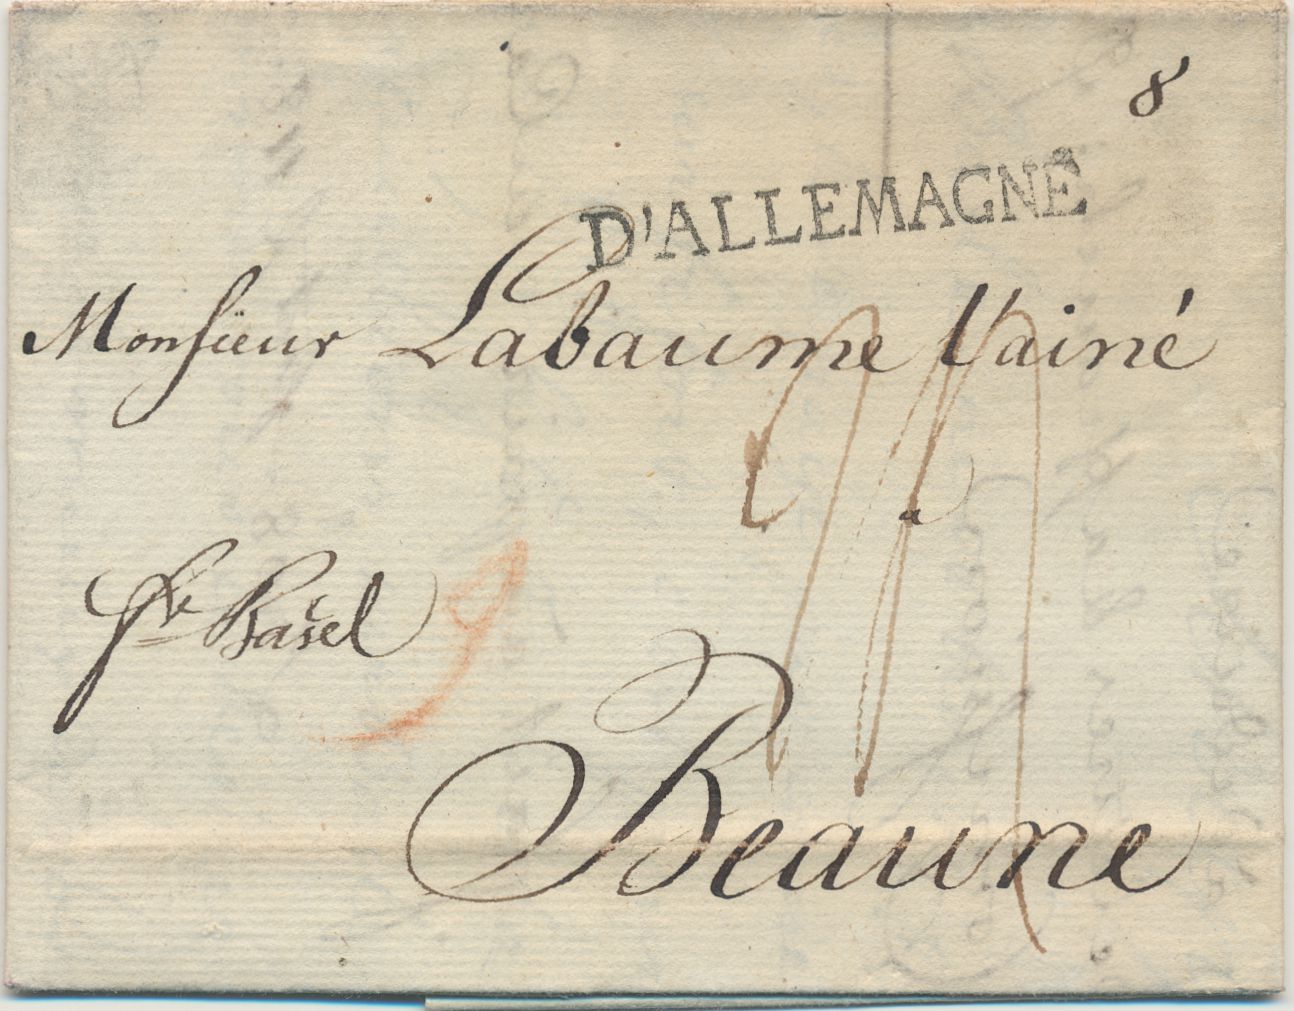 8
D'ALLEMAGNE
Monsieur Labaume l'ainé
a
pr Basel
9
Beaune